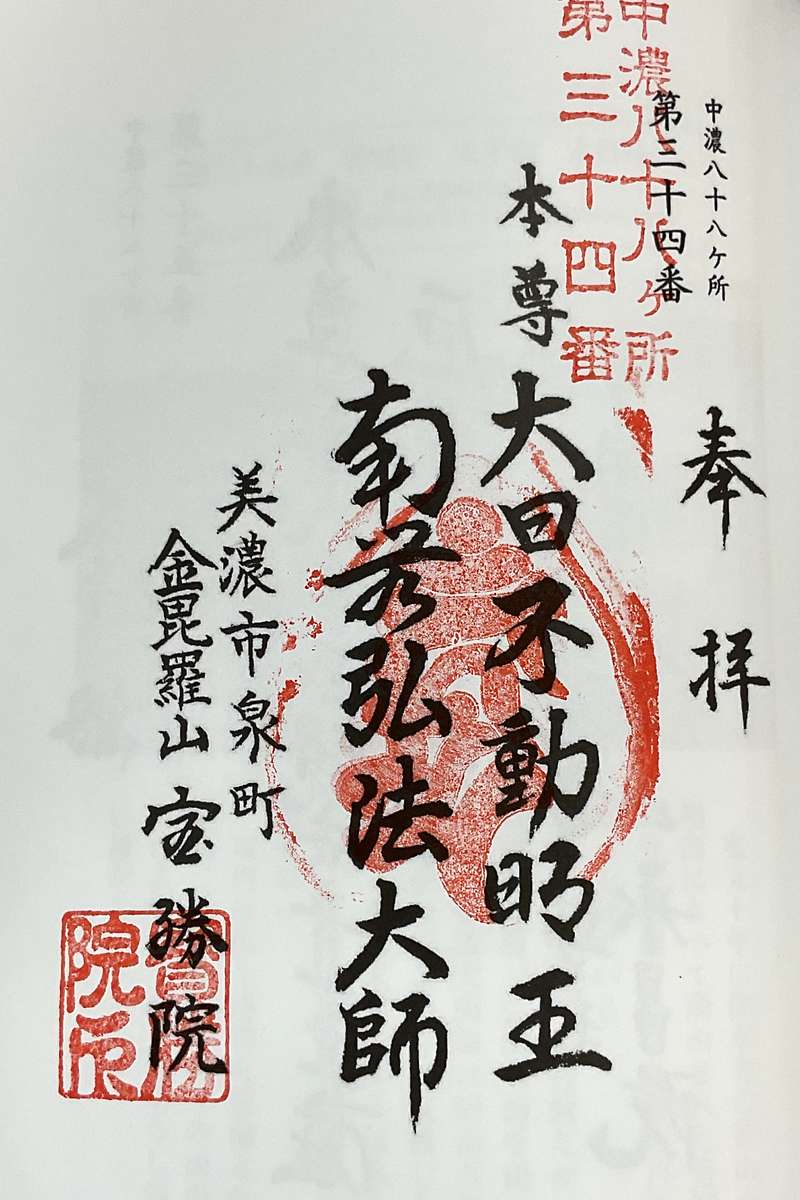 中濃八十八ヶ所
第三十四番
中濃八十八ヶ所
第三十四番
奉拝
本尊 大日不動明王
南無弘法大師
美濃市泉町
金毘羅山 宝勝院
寶勝
院印